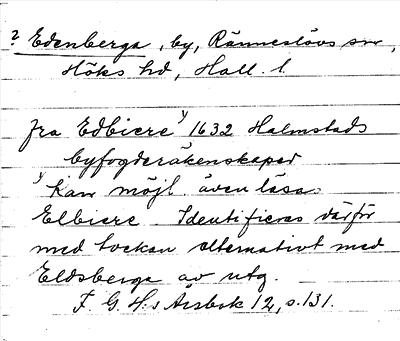 ? Edenberga, by, Ränneslövs sn,
Höks hd, Hall. l.
fra Edbiere x) 1632 Halmstads
byfogderäkenskaper
x) kan möjl. även läsas
Elbiere Identifieras därför
med tvekan alternativt med
Eldsberga av utg.
F. G. H:s Årsbok 12, s. 131.